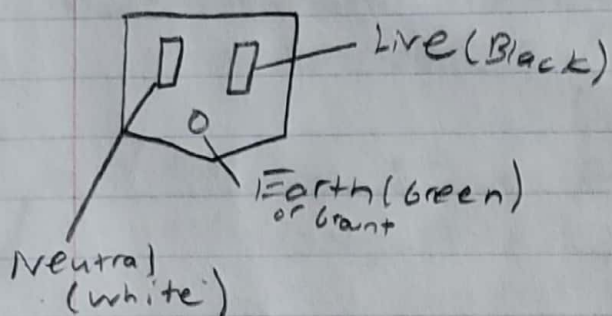 Live (Black)
Earth (Green)
or Grant
Neutral
(White)